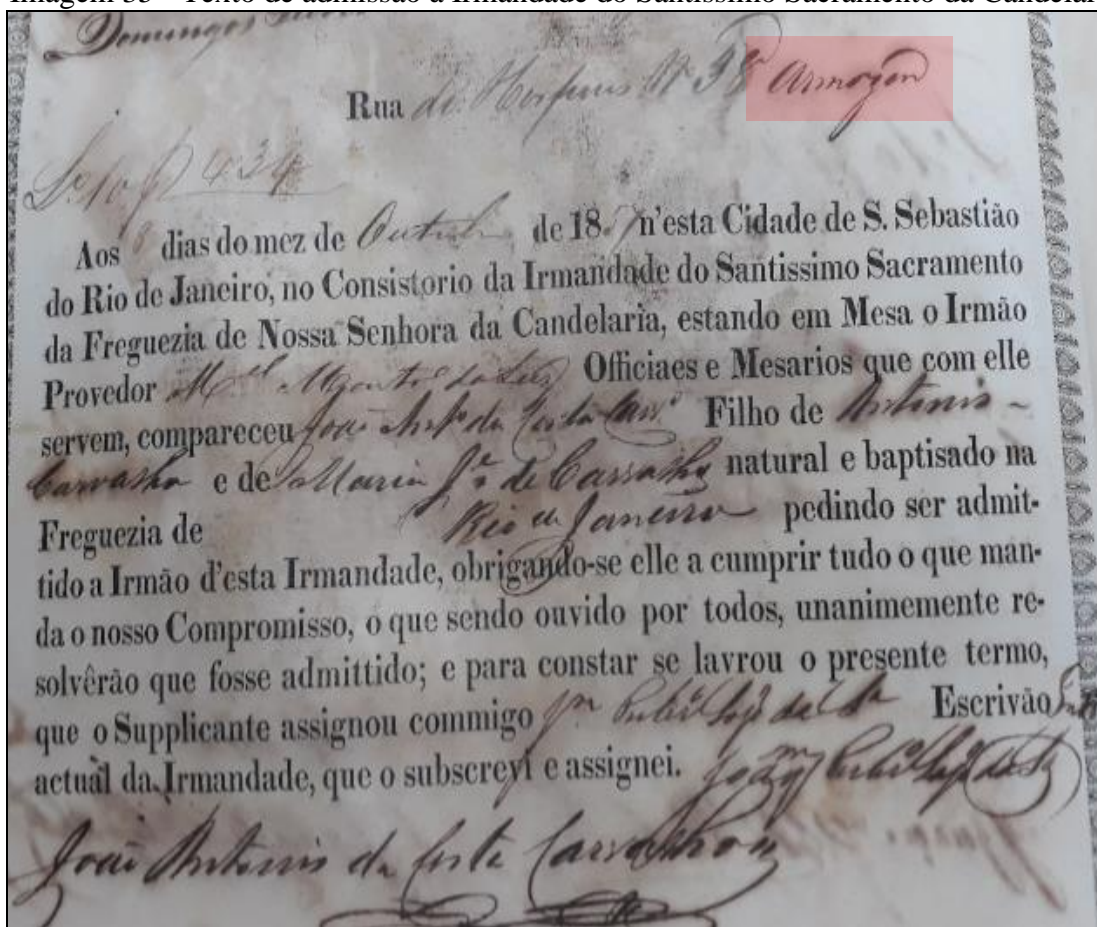 Imagem 33 - Texto de admissão à Irmandade do Santíssimo Sacramento da Candelár
Domingos
Rua do Hospicio Nº 38 Armazem
Lº 10 f 434
Aos 8 dias do mez de Outubro de 18 7 n'esta Cidade de S. Sebastião
do Rio de Janeiro, no Consistorio da Irmandade do Santissimo Sacramento
da Freguezia de Nossa Senhora da Candelaria, estando em Mesa o Irmão
Provedor Mel Officiaes e Mesarios que com elle
servem, compareceu João Antº da Costa Carvº Filho de Antonio
Carvalho e de Maria Jª de Carvalho natural e baptisado na
Freguezia de Rio de Janeiro pedindo ser admit-
tido a Irmão d'esta Irmandade, obrigando-se elle a cumprir tudo o que man-
da o nosso Compromisso, o que sendo ouvido por todos, unanimemente re-
solvêrão que fosse admittido; e para constar se lavrou o presente termo,
que o Supplicante assignou commigo Escrivão
actual da Irmandade, que o subscrevi e assignei.
João Antonio da Costa Carvalho